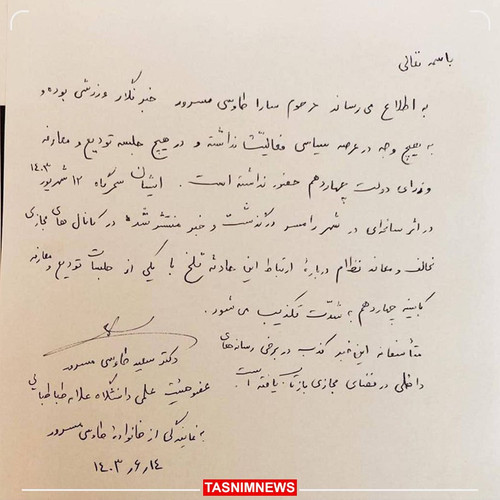 باسمه تعالی
به اطلاع می رساند مرحوم سارا طاوسی مسرور خبرنگار ورزشی بوده و
به هیچ وجه در عرصه سیاسی فعالیت نداشته و در هیچ جلسه تودیع و معارفه
وزرای دولت چهاردهم حضور نداشته است. ایشان سحرگاه ۱۲ شهریور ۱۴۰۳
در اثر سانحه‌ای در شهر رامسر درگذشت و خبر منتشر شده در کانال های مجازی
مخالف و معاند نظام درباره ارتباط این حادثه تلخ با یکی از جلسات تودیع و معارفه
کابینه چهاردهم به شدت تکذیب می شود.
متأسفانه این خبر کذب در برخی رسانه‌های
داخلی در فضای مجازی بازتاب یافته است.
دکتر سعید طاوسی مسرور
عضو هیئت علمی دانشگاه علامه طباطبایی
به نمایندگی از خانواده طاوسی مسرور
۱۴۰۳٫۶٫۱۴
TASNIMNEWS